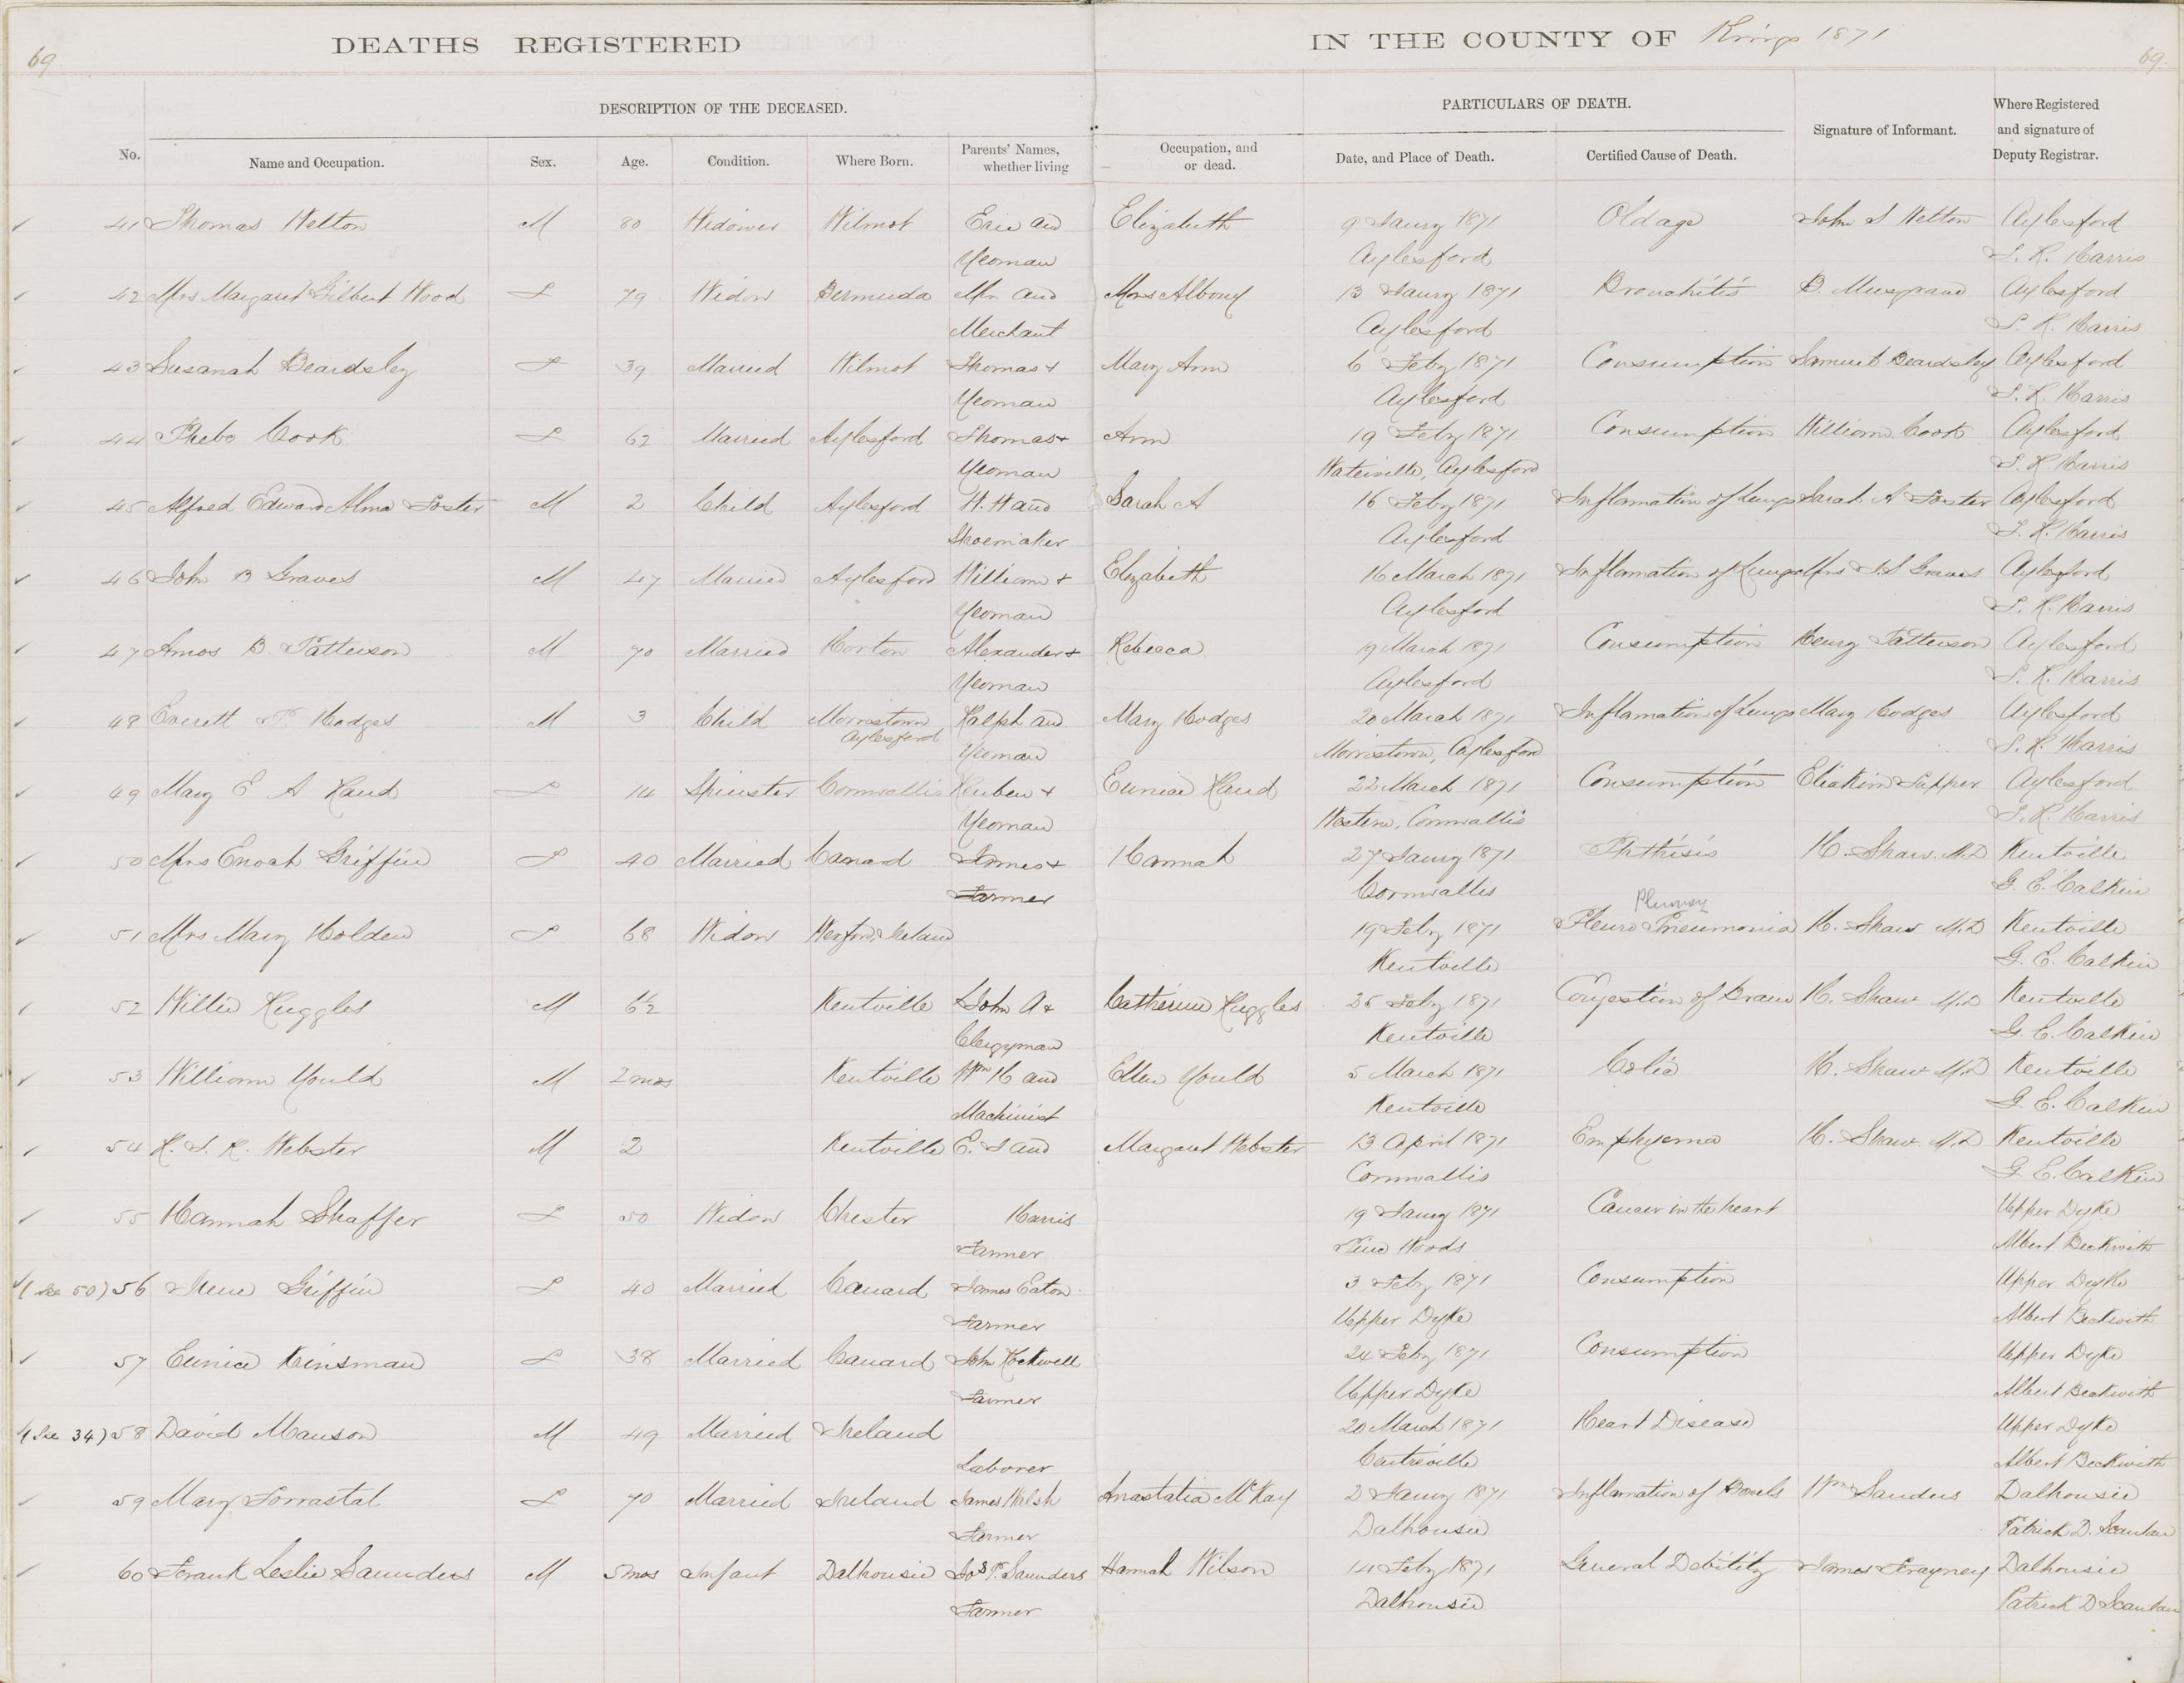 69
DEATHS REGISTERED
IN THE COUNTY OF Kings 1871
69.
DESCRIPTION OF THE DECEASED.
PARTICULARS OF DEATH.
Signature of Informant.
Where Registered and signature of Deputy Registrar.
No. Name and Occupation. Sex. Age. Condition. Where Born. Parents' Names, whether living Occupation, and or dead. Date, and Place of Death. Certified Cause of Death.
41 Thomas Welton M 80 Widower Wilmot Eric and Elizabeth 9 Jaury 1871 Old age John S Welton Aylesford
Yeoman Aylesford S. R. Harris
42 Mrs Margaret Gilbert Wood F 79 Widow Bermuda Mr and Mrs Albouy 13 Jaury 1871 Bronchitis B. Musgrave Aylesford
Merchant Aylesford S. R. Harris
43 Susanah Beardsley F 39 Married Wilmot Thomas + Mary Ann 6 Feby 1871 Consumption Samuel Beardsley Aylesford
Yeoman Aylesford S. R. Harris
44 Phebe Cook F 62 Married Aylesford Thomas + Ann 19 Feby 1871 Consumption William Cook Aylesford
Yeoman Waterville, Aylesford S. R. Harris
45 Alfred Edward Alma Foster M 2 Child Aylesford W. H and Sarah A 16 Feby 1871 Inflamation of Lungs Sarah A Foster Aylesford
Shoemaker Aylesford S. R. Harris
46 John B Graves M 47 Married Aylesford William + Elizabeth 16 March 1871 Inflamation of Lungs Mrs J. S Graves Aylesford
Yeoman Aylesford S. R. Harris
47 Amos B. Patterson M 70 Married Horton Alexander + Rebecca 19 March 1871 Consumption Henry Patterson Aylesford
Yeoman Aylesford S. R. Harris
48 Everett Hodges M 3 Child Morristown Aylesford Ralph and Mary Hodges 20 March 1871 Inflamation of Lungs Mary Hodges Aylesford
Yeoman Morristown, Aylesford S. R. Harris
49 Mary E A Rand F 14 Spinster Cornwallis Reuben + Eunice Rand 22 March 1871 Consumption Eliakim Tupper Aylesford
Yeoman Western, Cornwallis S. R. Harris
50 Mrs Enoch Griffin F 40 Married Canard James + Hannah 27 Jaury 1871 Phthisis H. Shaw. M.D Kentville
Farmer Cornwallis G. E. Calkin
Pleurisy
51 Mrs Mary Holden F 68 Widow Wexford, Ireland 19 Feby 1871 Pleuro Pneumonia H. Shaw M.D Kentville
Kentville G. E. Calkin
52 Willie Ruggles M 6½ Kentville John A + Catherine Ruggles 25 Feby 1871 Congestion of Brain H. Shaw M.D Kentville
Clergyman Kentville G. E. Calkin
53 William Yould M 2 mos Kentville Wm H and Ellen Yould 5 March 1871 Colic H. Shaw M.D Kentville
Machinist Kentville G. E. Calkin
54 R. S. R. Webster M 2 Kentville E. S and Margaret Webster 13 April 1871 Emphyema H. Shaw M.D Kentville
Cornwallis G. E. Calkin
55 Hannah Shaffer F 50 Widow Chester Harris 19 Jaury 1871 Cancer in the heart Upper Dyke
Farmer Pine Woods Albert Beckwith
(see 50) 56 Irene Griffin F 40 Married Canard James Eaton 3 Feby 1871 Consumption Upper Dyke
Farmer Upper Dyke Albert Beckwith
57 Eunice Kinsman F 38 Married Canard John Rockwell 24 Feby 1871 Consumption Upper Dyke
Farmer Upper Dyke Albert Beckwith
(See 34) 58 David Manson M 49 Married Ireland 20 March 1871 Heart Disease Upper Dyke
Laborer Centreville Albert Beckwith
59 Mary Forrastal F 70 Married Ireland James Walsh Anastatia McKay 2 Jaury 1871 Inflamation of Bowels Wm Sanders Dalhousie
Farmer Dalhousie Patrick D. Scanlan
60 Frank Leslie Saunders M 5 mos Infant Dalhousie Jos P. Saunders Hannah Wilson 14 Feby 1871 General Debility James Dalhousie
Farmer Dalhousie Patrick D Scanlan